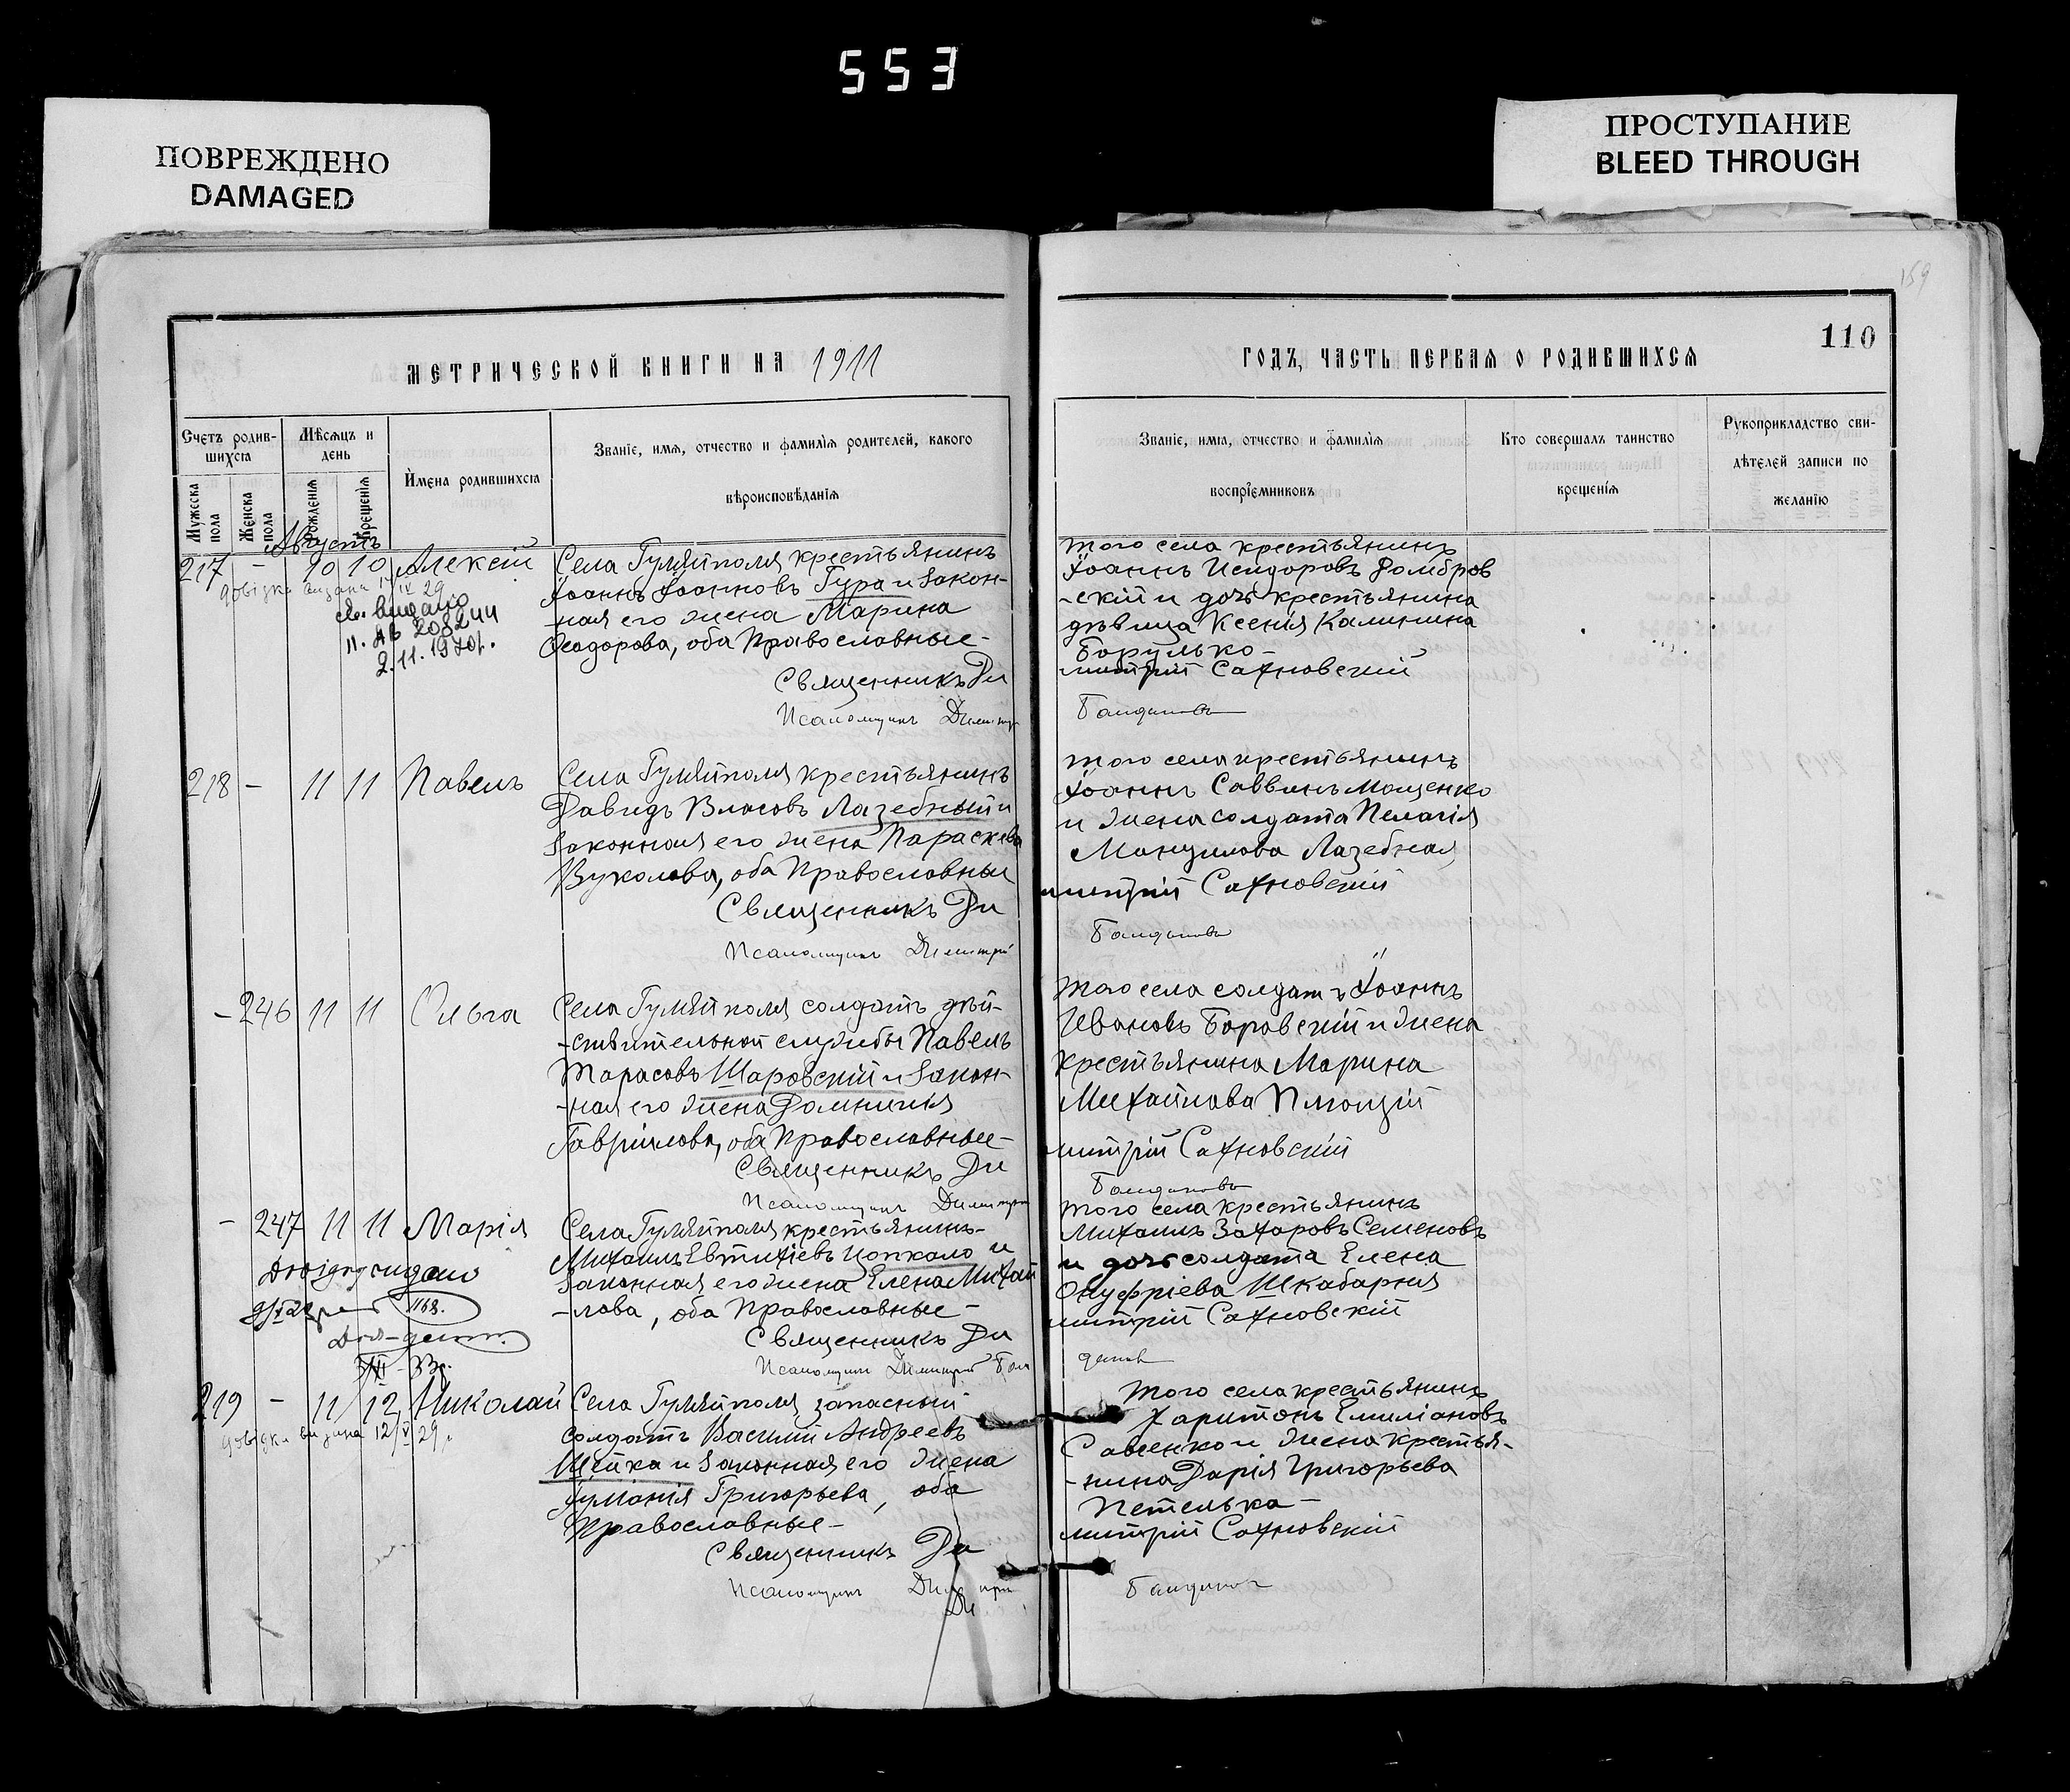 553
ПОВРЕЖДЕНО
DAMAGED
ПРОСТУПАНИЕ
BLEED THROUGH
159
110
МЕТРИЧЕСКОЙ КНИГИ НА 1911
ГОДЪ, ЧАСТЬ ПЕРВАЯ О РОДИВШИХСЯ
Счетъ родив-
шихся
Мужеска пола
Женска пола
Мѣсяцъ и
день
Рожденія
Крещенія
Имена родившихся
Званіе, имя, отчество и фамилія родителей, какого
вѣроисповѣданія
Званіе, имя, отчество и фамилія
воспріемниковъ
Кто совершалъ таинство
крещенія
Рукоприкладство сви-
дѣтелей записи по
желанію
Августъ
217 - 10 10 Алексій
довідка видана IV 29
св. видано
II. АБ 208244
2.11.1970г.
Села Гуляйполя крестьянинъ
Іоаннъ Іоанновъ Гура и закон-
ная его жена Марина
Ѳеодорова, оба Православные-
Священникъ Ди
Псаломщикъ Димитр
того села крестьянинъ
Іоаннъ Исидоровъ Домбров
-скій и дочь крестьянина
дѣвица Ксенія Калинина
Борулько-
митрій Сахновскій
218 - 11 11 Павелъ
Села Гуляйполя крестьянинъ
Давидъ Власовъ Лазебный и
законная его жена Параскева
Вуколова, оба Православные
Священникъ Ди
Псаломщикъ Димитрій
того села крестьянинъ
Іоаннъ Саввинъ Мощенко
и жена солдата Пелагія
Мануилова Лазебная
митрій Сахновскій
- 246 11 11 Ольга
Села Гуляйполя солдатъ дѣй-
-ствительной службы Павелъ
Тарасовъ Шаровскій и закон-
-ная его жена Домникія
Гавріилова, оба Православные-
Священникъ Ди
Псаломщикъ Димитрій
Того села солдатъ Іоаннъ
Ивановъ Боровскій и жена
крестьянина Марина
Михайлова
митрій Сахновскій
- 247 11 11 Марія
1168.
Села Гуляйполя крестьянинъ-
Михаилъ Евтихіевъ Цопкало и
законная его жена Елена Михай
-лова, оба Православные-
Священникъ Ди
Псаломщикъ Димитрій
того села крестьянинъ
Михаилъ Захаровъ Семеновъ
и дочь солдата Елена
Онуфріева Шкабарня
митрій Сахновскій
219 - 11 12 Николай
довідка видана 12/V 29 р
Села Гуляйполя, запасный
солдатъ Василій Андреевъ
Щейка и законная его жена
Іуліанія Григорьева, оба
Православные-
Священникъ Ди
Псаломщикъ
Ди
Того села крестьянинъ
Харитонъ Емиліановъ
Савенко и жена крестья-
-нина Дарія Григорьева
Петелька-
митрій Сахновскій